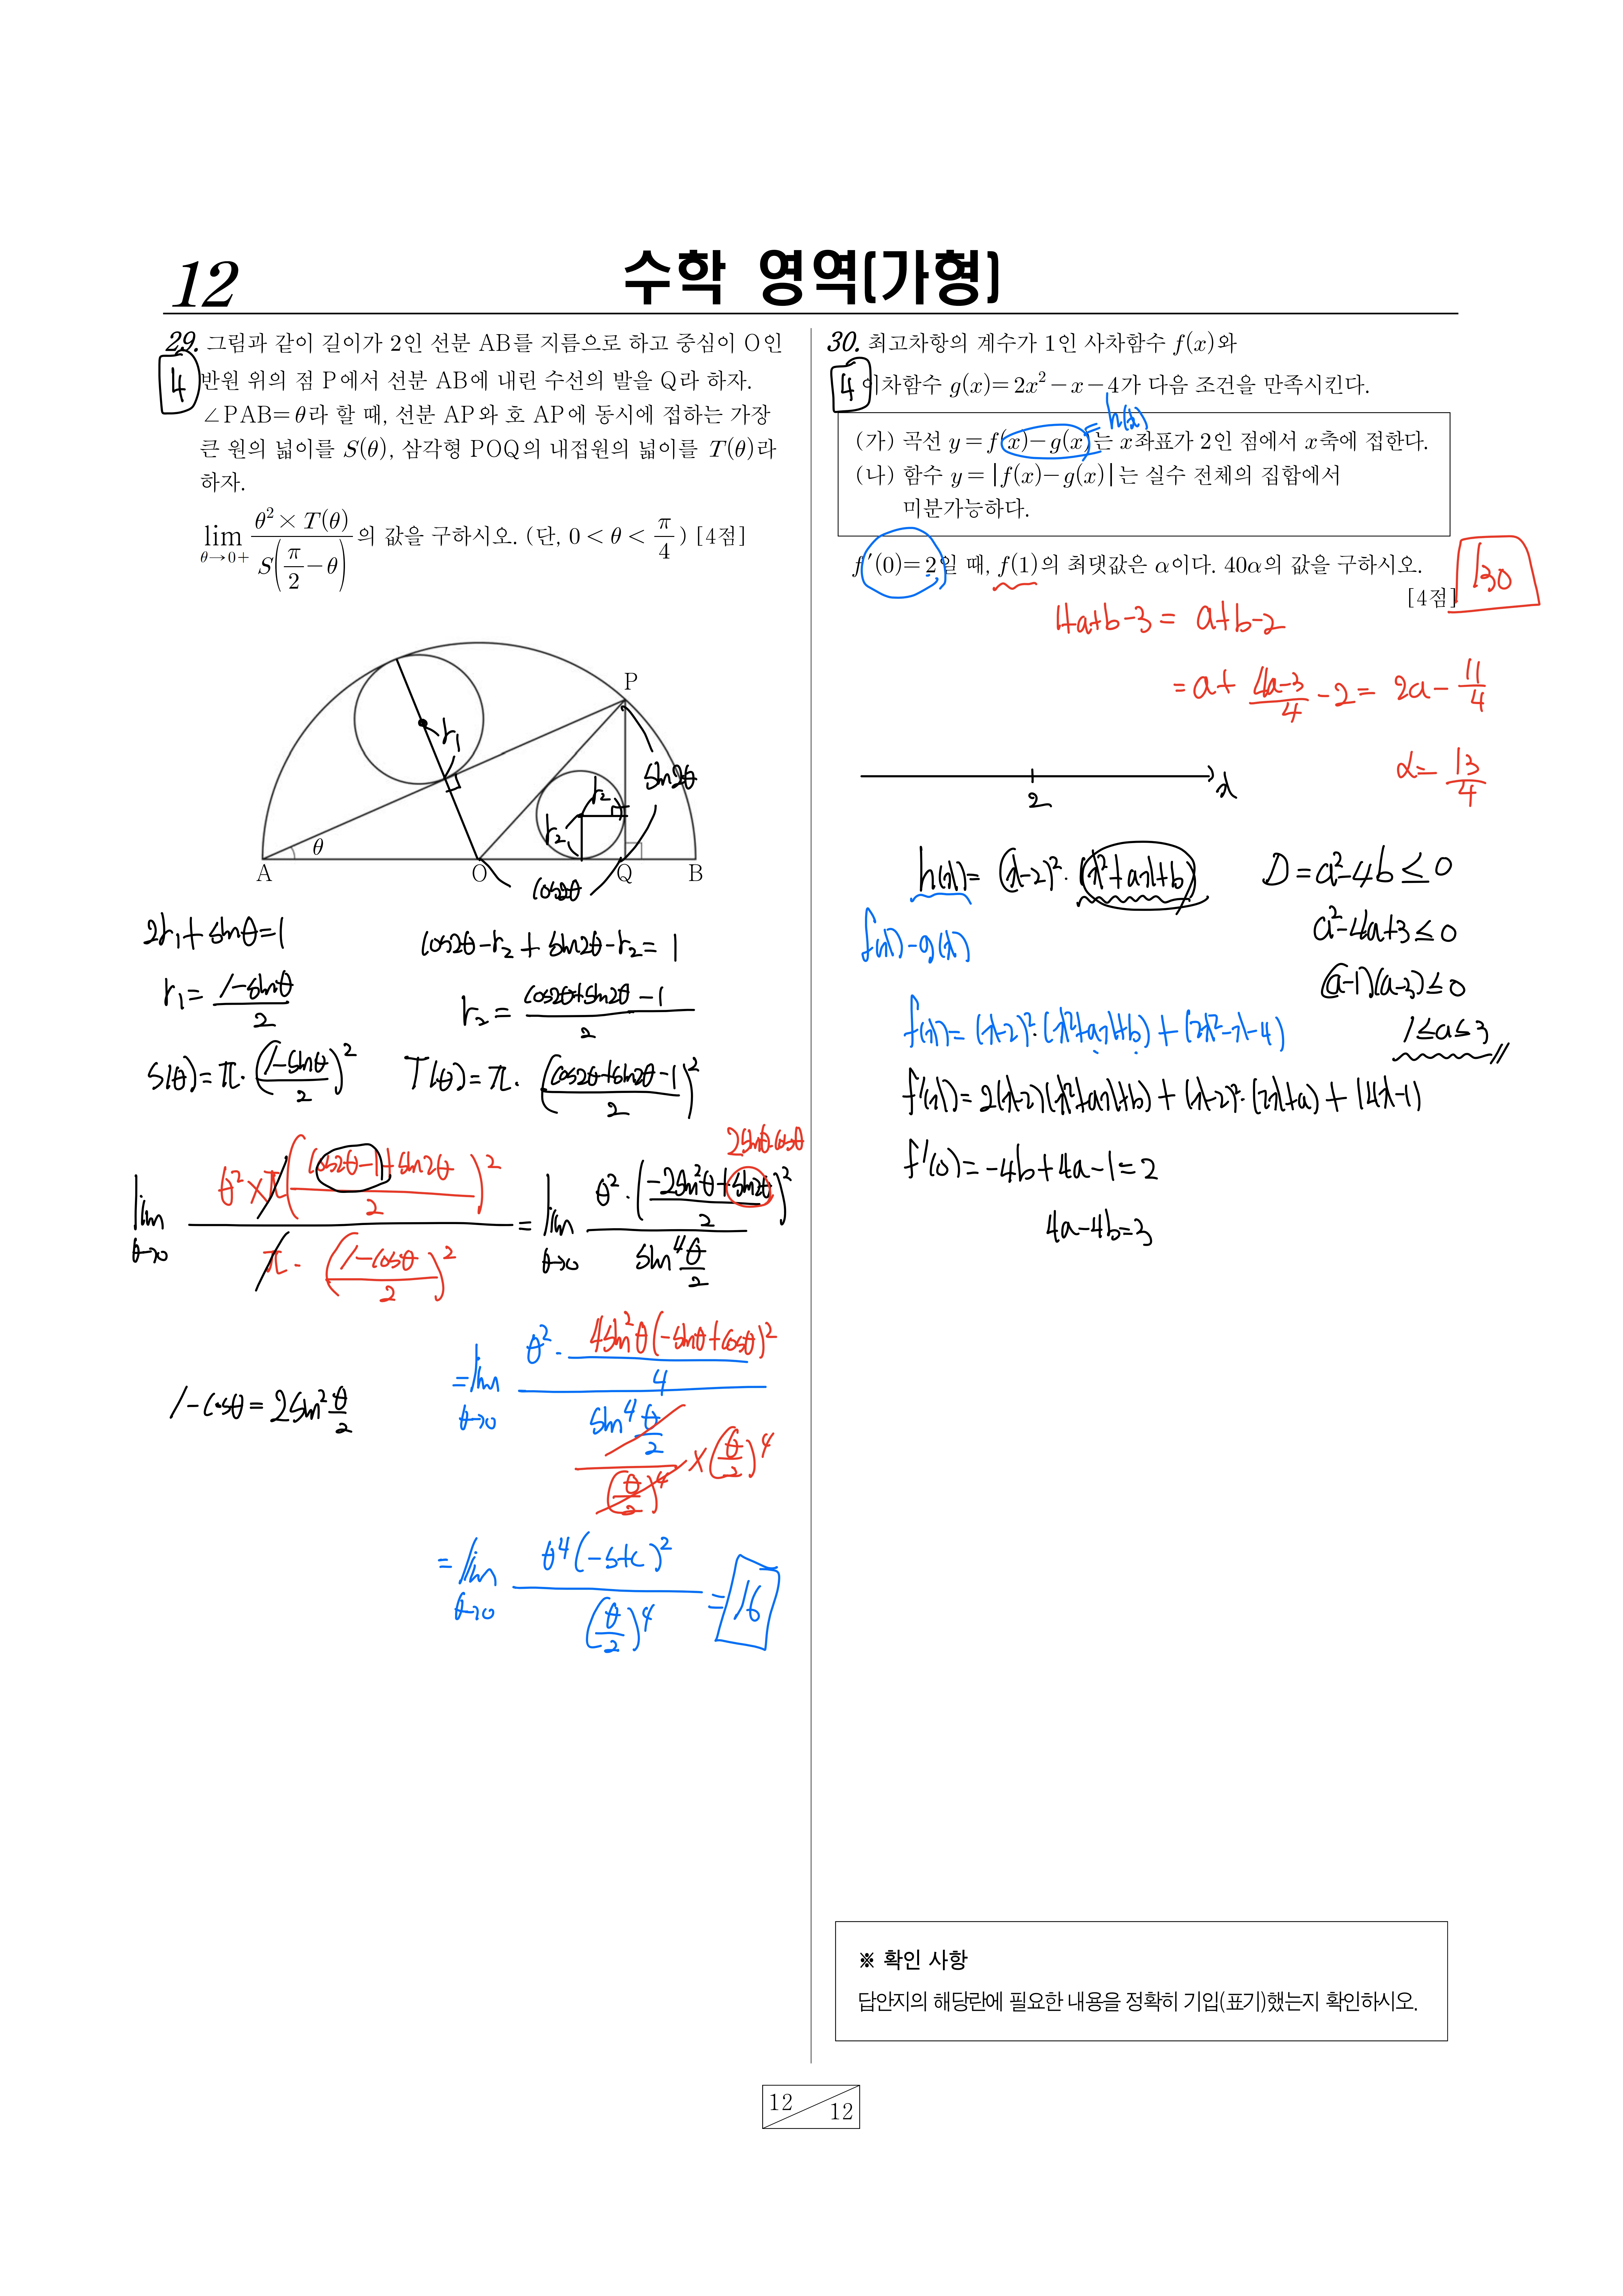 12
수학 영역(가형)
29. 그림과 같이 길이가 2인 선분 AB를 지름으로 하고 중심이 O인
4
반원 위의 점 P에서 선분 AB에 내린 수선의 발을 Q라 하자.
∠PAB=θ라 할 때, 선분 AP와 호 AP에 동시에 접하는 가장
큰 원의 넓이를 S(θ), 삼각형 POQ의 내접원의 넓이를 T(θ)라
하자.
lim θ→0+ (θ² × T(θ)) / S(π/2 − θ) 의 값을 구하시오. (단, 0 < θ < π/4) [4점]
P
r₁
sin2θ
r₂
r₂
θ
A O Q B
cos2θ
2r₁ + sinθ = 1
r₁ = (1−sinθ)/2
S(θ) = π·((1−sinθ)/2)²
cos2θ−r₂ + sin2θ−r₂ = 1
r₂ = (cos2θ+sin2θ −1)/2
T(θ) = π·((cos2θ+sin2θ−1)/2)²
2sinθ·cosθ
lim θ→0 (θ² × π((cos2θ−1+sin2θ)/2)²) / (π·((1−cosθ)/2)²) = lim θ→0 (θ²·((−2sin²θ+sin2θ)/2)²) / (sin⁴ θ/2)
1−cosθ = 2sin² θ/2
= lim θ→0 (θ²· 4sin²θ(−sinθ+cosθ)²/4) / (sin⁴ θ/2 / (θ/2)⁴ × (θ/2)⁴)
= lim θ→0 θ⁴(−s+c)² / (θ/2)⁴ = 16
30. 최고차항의 계수가 1인 사차함수 f(x)와
4
이차함수 g(x)=2x²−x−4가 다음 조건을 만족시킨다.
= h(x)
(가) 곡선 y=f(x)−g(x)는 x좌표가 2인 점에서 x축에 접한다.
(나) 함수 y=|f(x)−g(x)|는 실수 전체의 집합에서
미분가능하다.
f′(0)=2일 때, f(1)의 최댓값은 α이다. 40α의 값을 구하시오.
[4점]
130
4a+b−3 = a+b−2
= a + (4a−3)/4 − 2 = 2a − 11/4
α = 13/4
2 x
h(x) = (x−2)²·(x²+ax+b)
f(x)−g(x)
D = a²−4b ≤ 0
a²−4a+3 ≤ 0
(a−1)(a−3) ≤ 0
1≤a≤3
f(x) = (x−2)²·(x²+ax+b) + (2x²−x−4)
f′(x) = 2(x−2)(x²+ax+b) + (x−2)²·(2x+a) + (4x−1)
f′(0) = −4b+4a−1 = 2
4a−4b=3
※ 확인 사항
답안지의 해당란에 필요한 내용을 정확히 기입(표기)했는지 확인하시오.
12
12